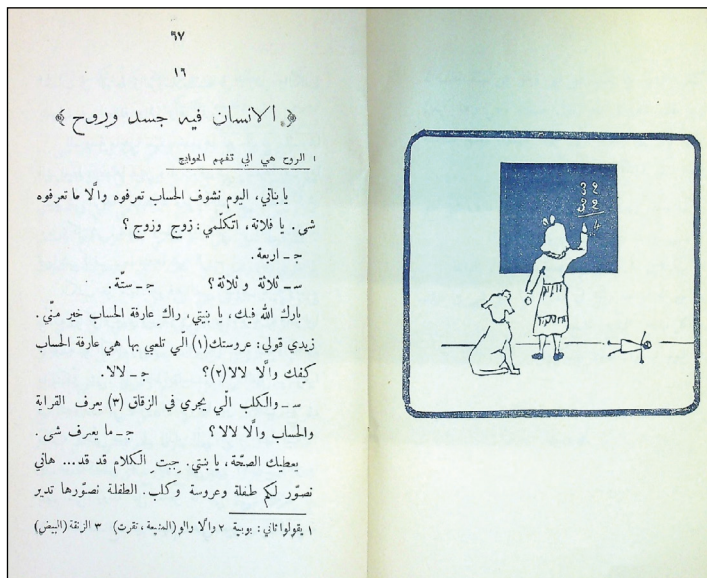 ٩٧
١٦
﴿ الانسان فيه جسد وروح ﴾
١ الروح هي الي تفهم الحوايج
يا بناتي، اليوم نشوف الحساب تعرفوه والّا ما تعرفوه
شى. يا فلانة، اتكلّمي: زوج وزوج؟
جـ ـ اربعة.
س ـ ثلاثة وثلاثة؟ جـ ـ ستّة.
بارك الله فيك، يا بنيتي، راكِ عارفة الحساب خير منّي.
زيدي قولي: عروستك(١) الّي تلعبي بها هي عارفة الحساب
كيفك والّا لالا(٢)؟ جـ ـ لالا.
س ـ والكلب الّي يجري في الزقاق (٣) يعرف القراية
والحساب والّا لالا؟ جـ ـ ما يعرف شى.
يعطيك الصحّة، يا بنتي. جبتِ الكلام قد قد... هاني
نصوّر لكم طفلة وعروسة وكلب. الطفلة نصوّرها تدير
١ يقولوا ثاني: بوبية ٢ والّا والو (المنيعة، تقرت) ٣ الزنقة (البيض)